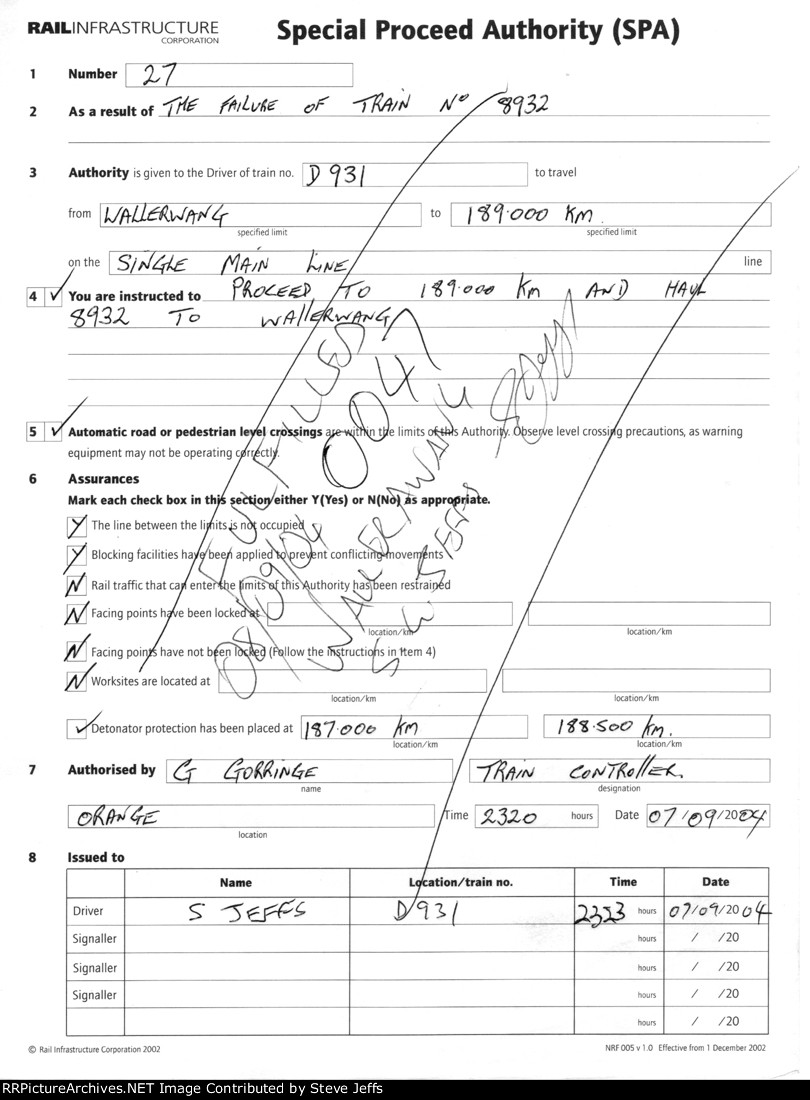 RAILINFRASTRUCTURE
CORPORATION
Special Proceed Authority (SPA)
1 Number 27
2 As a result of THE FAILURE OF TRAIN No 8932
3 Authority is given to the Driver of train no. D931 to travel
from WALLERWANG to 189.000 KM.
specified limit specified limit
on the SINGLE MAIN LINE line
4 ✓ You are instructed to PROCEED TO 189.000 Km AND HAUL
8932 TO WALLERWANG
5 ✓ Automatic road or pedestrian level crossings are within the limits of this Authority. Observe level crossing precautions, as warning
equipment may not be operating correctly.
6 Assurances
Mark each check box in this section either Y(Yes) or N(No) as appropriate.
Y The line between the limits is not occupied
Y Blocking facilities have been applied to prevent conflicting movements
N Rail traffic that can enter the limits of this Authority has been restrained
N Facing points have been locked at
location/km location/km
N Facing points have not been locked (Follow the instructions in Item 4)
N Worksites are located at
location/km location/km
✓ Detonator protection has been placed at 187.000 km 188.500 km.
location/km location/km
FULFILLED
0047
08/09/04
WALLERAWANG
S W JEFFS
SJeffs
7 Authorised by G GORRINGE TRAIN CONTROLLER.
name designation
ORANGE Time 2320 hours Date 07/09/2004
location
8 Issued to
Name Location/train no. Time Date
Driver S JEFFS D931 2323 hours 07/09/2004
Signaller hours / /20
Signaller hours / /20
Signaller hours / /20
hours / /20
© Rail Infrastructure Corporation 2002 NRF 005 v 1.0 Effective from 1 December 2002
RRPictureArchives.NET Image Contributed by Steve Jeffs